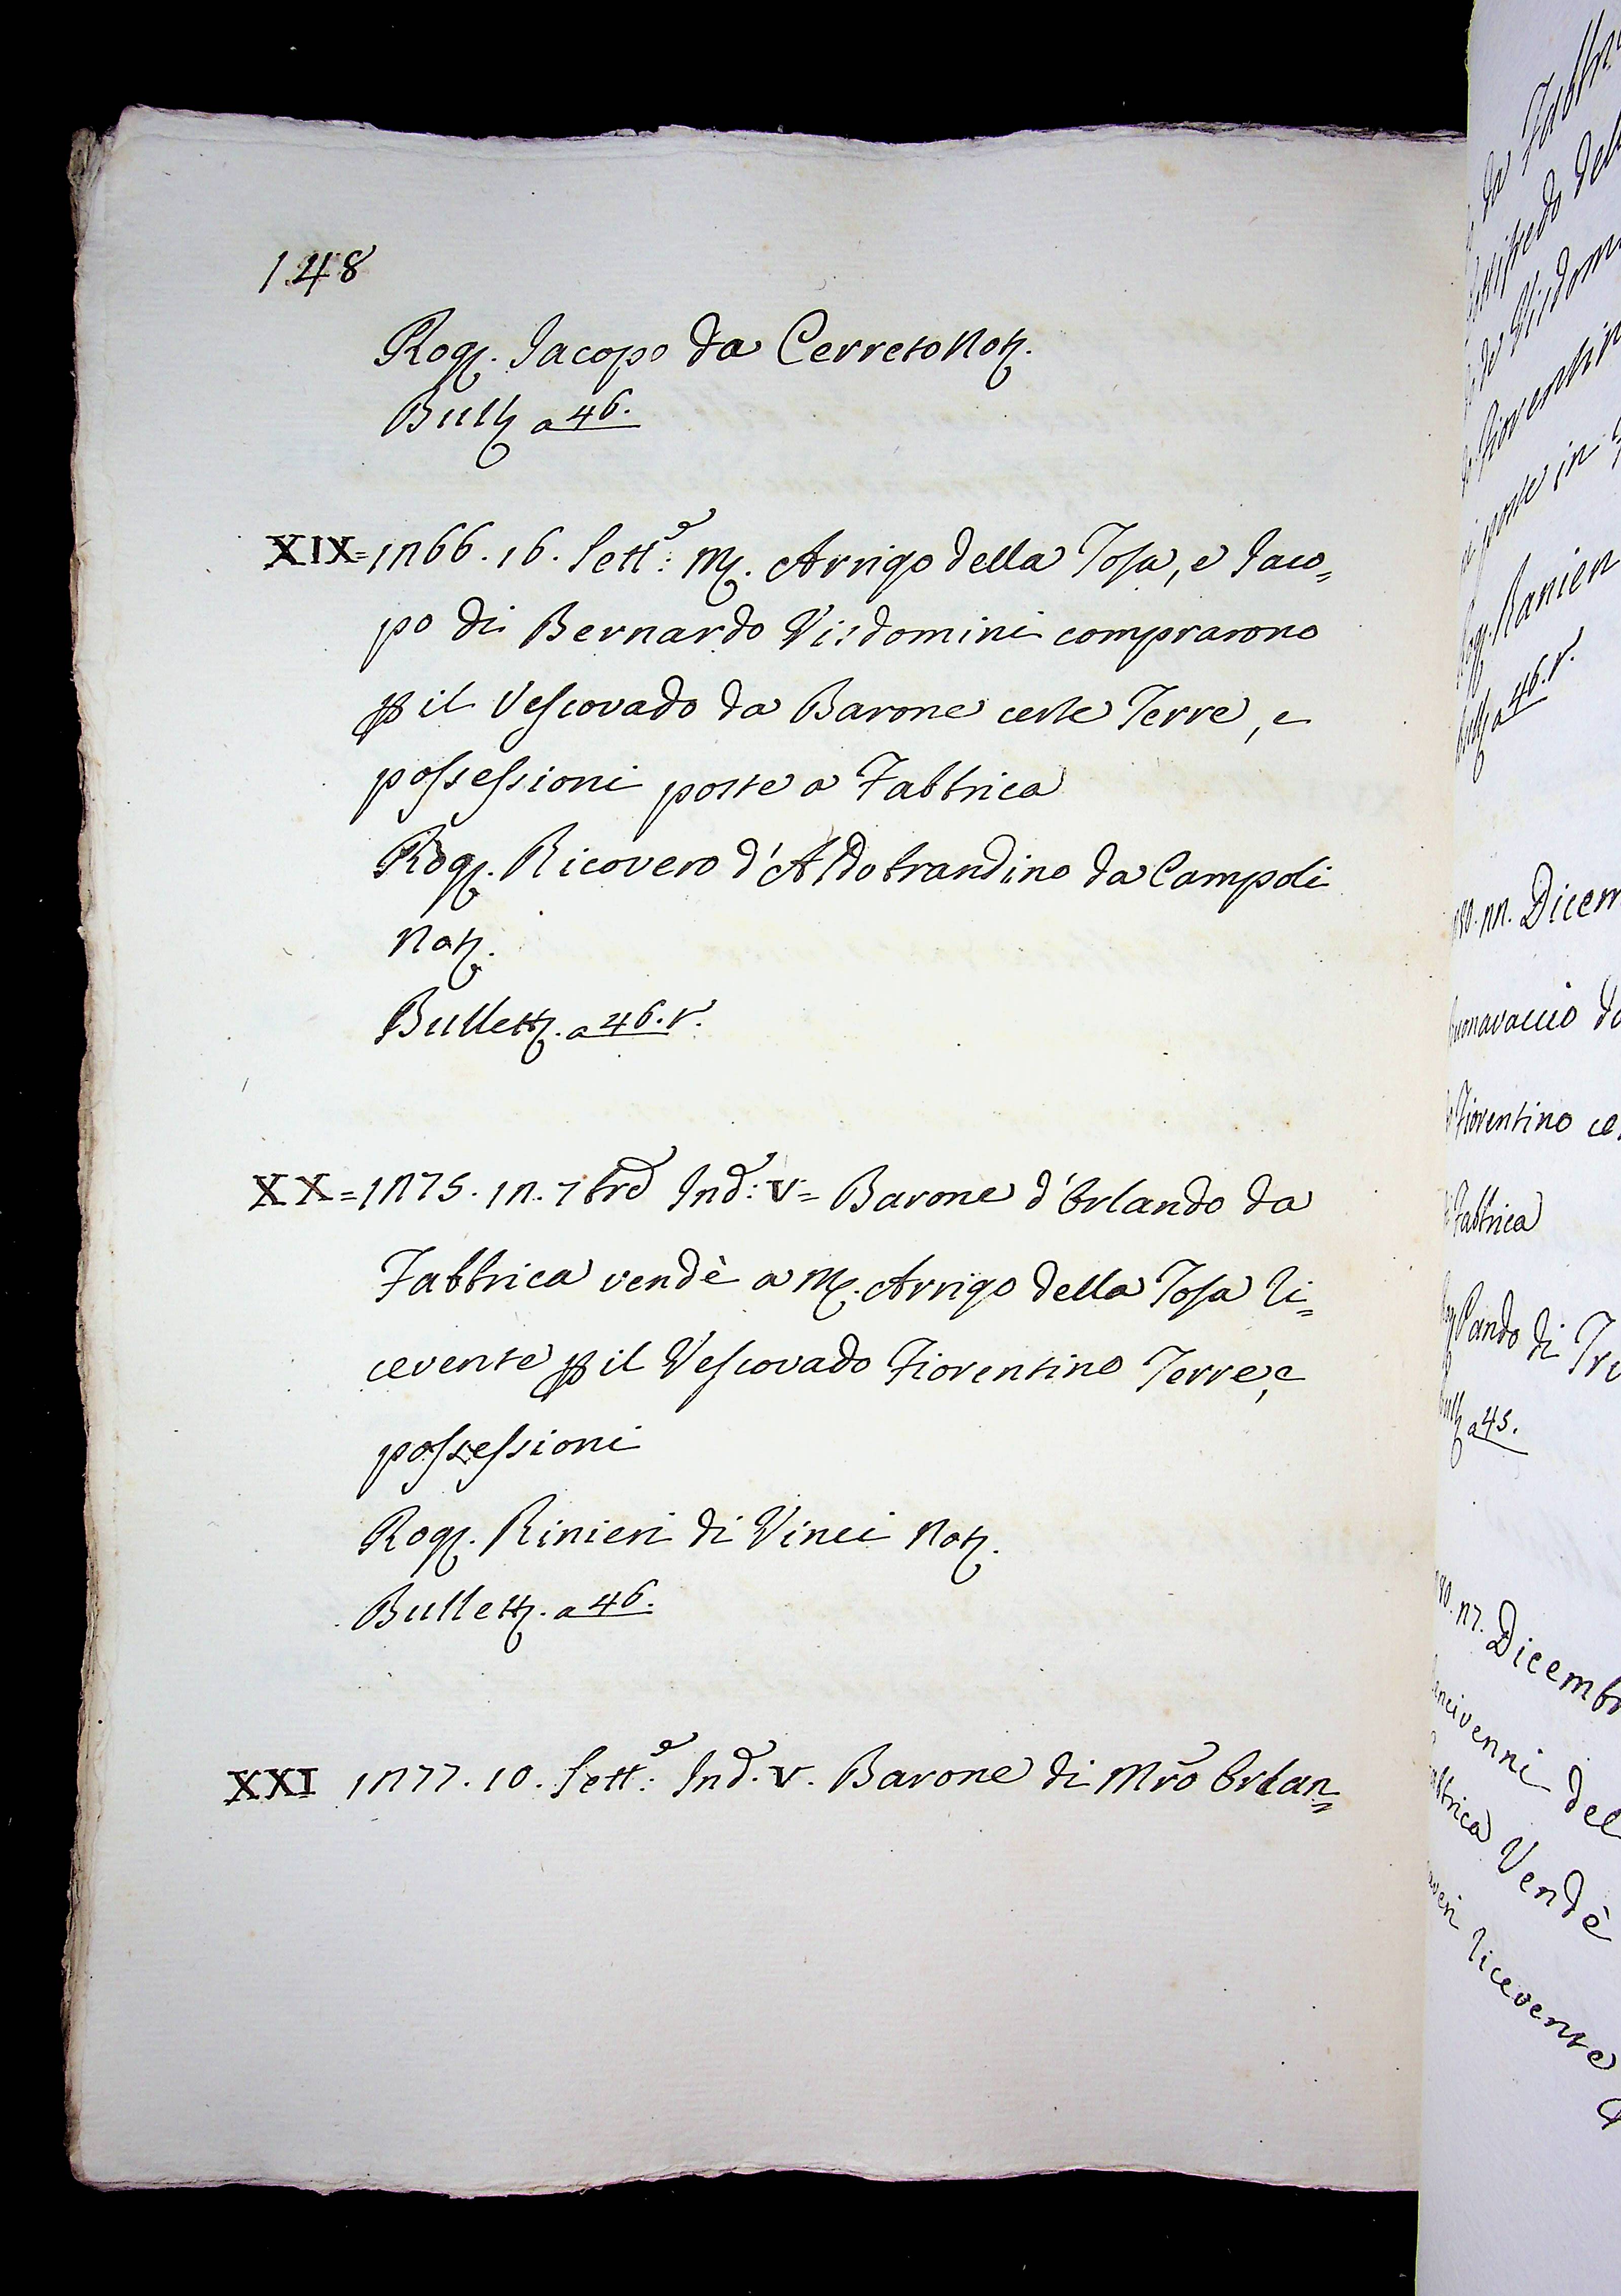 148
Rogͭ. Iacopo da Cerreto Notͦ.
Bullͦ a 46.
XIX=1266. 16. Settᵉ: Mͬ. Arrigo della Tosa, e Iaco=
po di Bernardo Visdomini comprarono
ꝑ il Vescovado da Barone certe Terre, e
possessioni poste a Fabbrica
Rogͭ. Ricovero d'Aldobrandino da Campoli
Notͦ.
Bullettͦ. a 46. v.
XX=1275. 12. 7bre Ind: V= Barone d'Orlando da
Fabbrica vendè a Mͬ. Arrigo della Tosa ri=
cevente ꝑ il Vescovado Fiorentino Terre, e
possessioni
Rogͭ. Rinieri di Vinci Notͦ.
Bullettͦ. a 46.
XXI 1277. 10. Settᵉ: Ind. V. Barone di Mro Orlan=
da Fabbr
de Visdomi
Fiorentin
poste in
Rogͭ. Ranieri
Bullͦ a 46. v.
22. Dicem
Buonavaccio da
Fiorentino ce
Fabbrica
Bullͦ a 45.
27. Dicembr
Bencivenni del
Fabbrica Vendè
ricevente